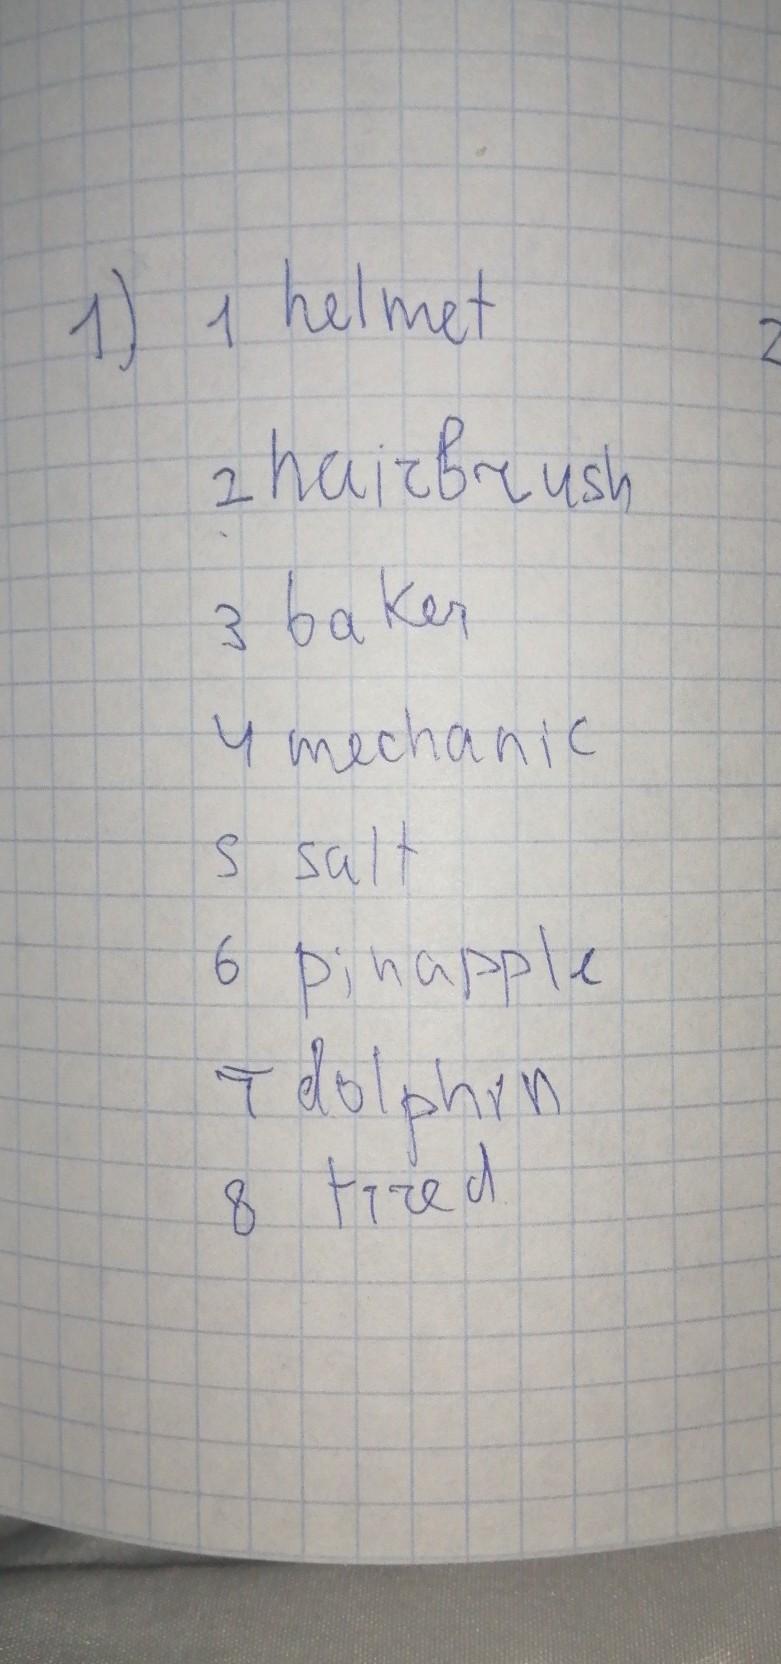 1) 1 helmet
2
2 hairbrush
3 baker
4 mechanic
5 salt
6 pinapple
7 dolphin
8 tired